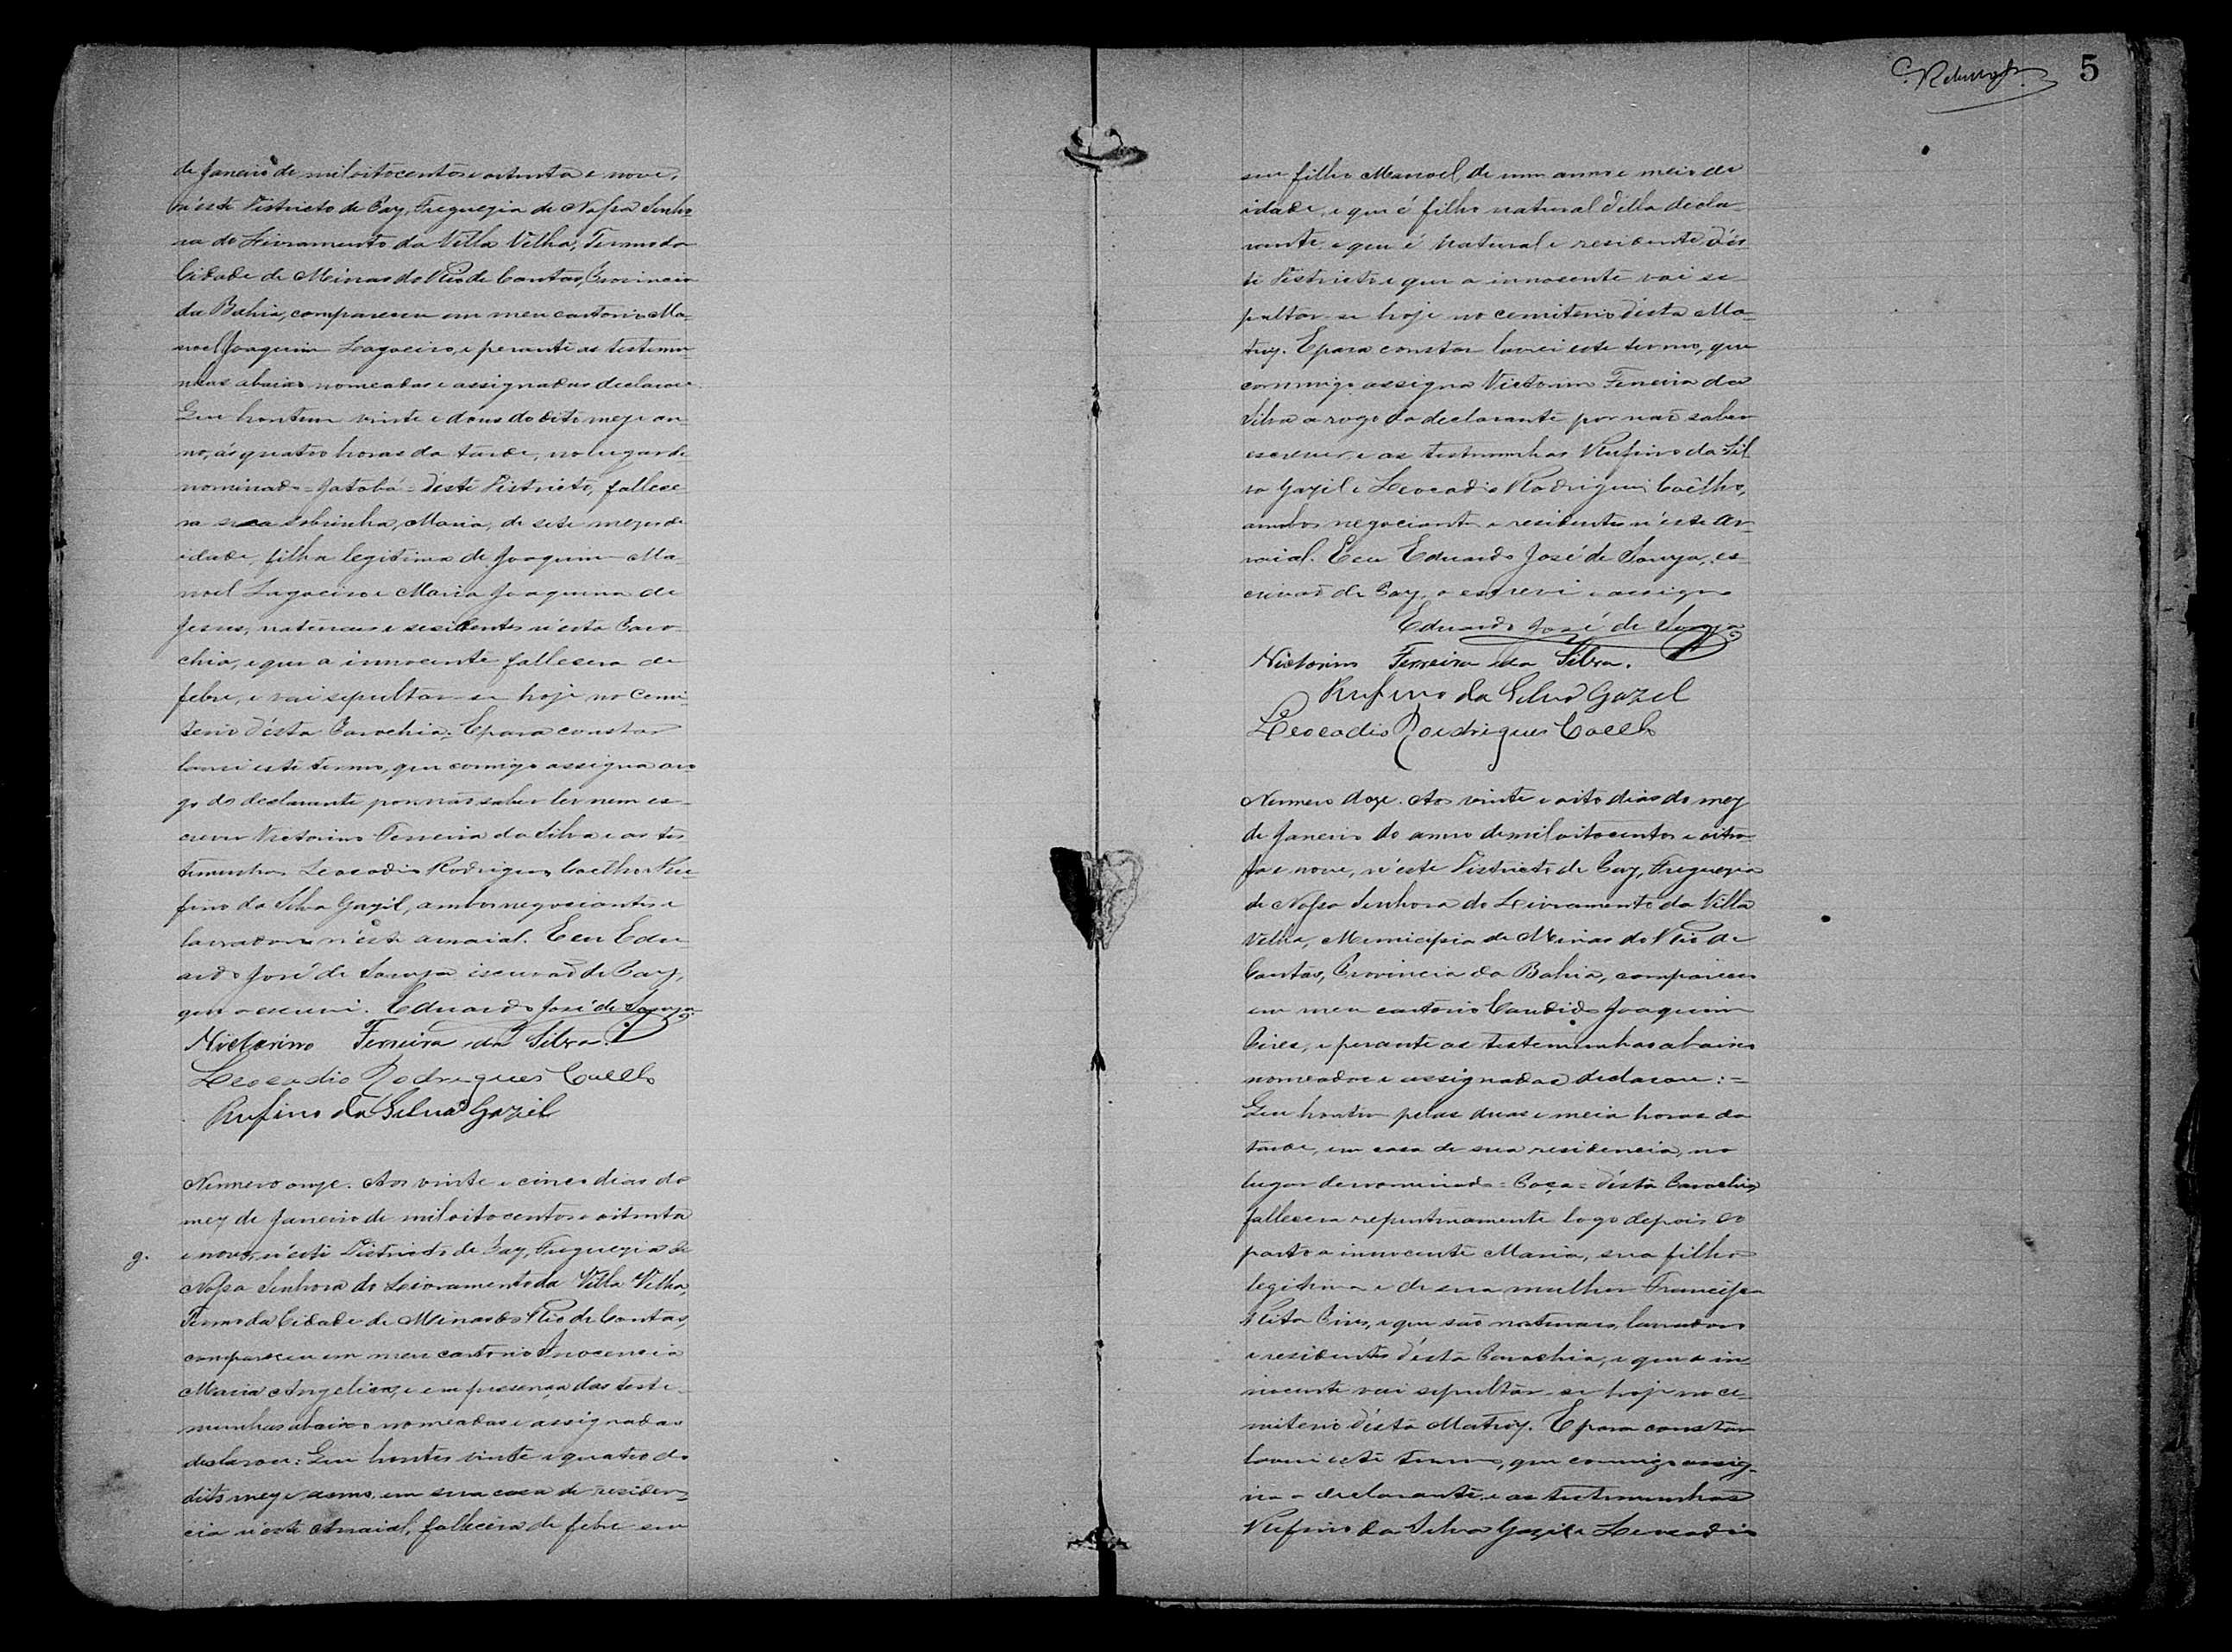 de Janeiro de mil oitocentos e oitenta e nove,
n'este Districto de Paz, Freguezia de Nossa Senho-
ra do Livramento da Villa Velha, Termo da
Cidade de Minas do Rio de Contas, Provincia
da Bahia, compareceu em meu cartorio Ma-
noel Joaquim Lagoeiro, e perante as testemu-
nhas abaixo nomeadas e assignadas declarou:
Que hontem vinte e dous do dito mez e an-
no, ás quatro horas da tarde, no lugar de-
nominado = Jatobá = d'este Districto, fallece-
ra sua sobrinha, Maria, de sete mezes de
idade, filha legitima de Joaquim Ma-
noel Lagoeiro e Maria Joaquina de
Jesus, naturaes e residentes n'esta Paro-
chia, e que a innocente fallecera de
febre, e vai sepultar-se hoje no Cemi-
terio d'esta Parochia. E para constar
lavrei este termo, que comigo assigna a ro-
go do declarante por não saber ler nem es-
crever Victorino Ferreira da Silva e as tes-
temunhas Leocadio Rodrigues Coelho e Ru-
fino da Silva Gazil, ambos negociantes e
lavradores n'este arraial. E eu Edu-
ardo José de Souza escrivão de Paz,
que o escrevi. Eduardo José de Souza
Victorino Ferreira da Silva.
Leocadio Rodrigues Coelho
Rufino da Silva Gazil
Numero onze. Aos vinte e cinco dias do
mez de Janeiro de mil oitocentos e oitenta
g. e nove, n'este Districto de Paz, Freguezia de
Nossa Senhora do Livramento da Villa Velha,
Termo da Cidade de Minas do Rio de Contas,
compareceu em meu cartorio Innocencia
Maria Angelica, e em presença das teste-
munhas abaixo nomeadas e assignadas
declarou: Que hontem vinte e quatro do
dito mez e anno, em sua casa de residen-
cia n'este Arraial, fallecera de febre seu
5
seu filho Manoel, de um anno e meio de
idade, e que é filho natural d'ella decla-
rante e que é natural e residente d'es-
te Districto e que o innocente vai se-
pultar-se hoje no cemiterio d'esta Ma-
triz. E para constar lavrei este termo, que
commigo assigna Victorino Ferreira da
Silva a rogo da declarante por não saber
escrever e as testemunhas Rufino da Sil
va Gazil e Leocadio Rodrigues Coêlho,
ambos negociantes e residentes n'este Ar-
raial. E eu Eduardo José de Souza, es-
crivão de Paz, o escrevi e assigno
Eduardo José de Souza
Victorino Ferreira da Silva.
Rufino da Silva Gazil
Leocadio Rodrigues Coelho
Numero doze. Aos vinte e oito dias do mez
de Janeiro do anno de mil oitocentos e oiten-
ta e nove, n'este Districto de Paz, Freguezia
de Nossa Senhora do Livramento da Villa
Velha, Municipio de Minas do Rio de
Contas, Provincia da Bahia, compareceu
em meu cartorio Candido Joaquim
Pires, e perante as testemunhas abaixo
nomeadas e assignadas declarou: =
Que hontem pelas duas e meia horas da
tarde, em casa de sua residencia, no
lugar denominado = Poço = d'esta Parochia,
fallecera repentinamente logo depois do
parto a innocente Maria, sua filha
legitima e de sua mulher Francisca
Rita Pires, e que são naturaes, lavradores
e residentes d'esta Parochia, e que a in-
nocente vai sepultar-se hoje no ce-
miterio d'esta Matriz. E para constar
lavrei este termo, que commigo assig-
na o declarante e as testemunhas
Rufino da Silva Gazil e Leocadio